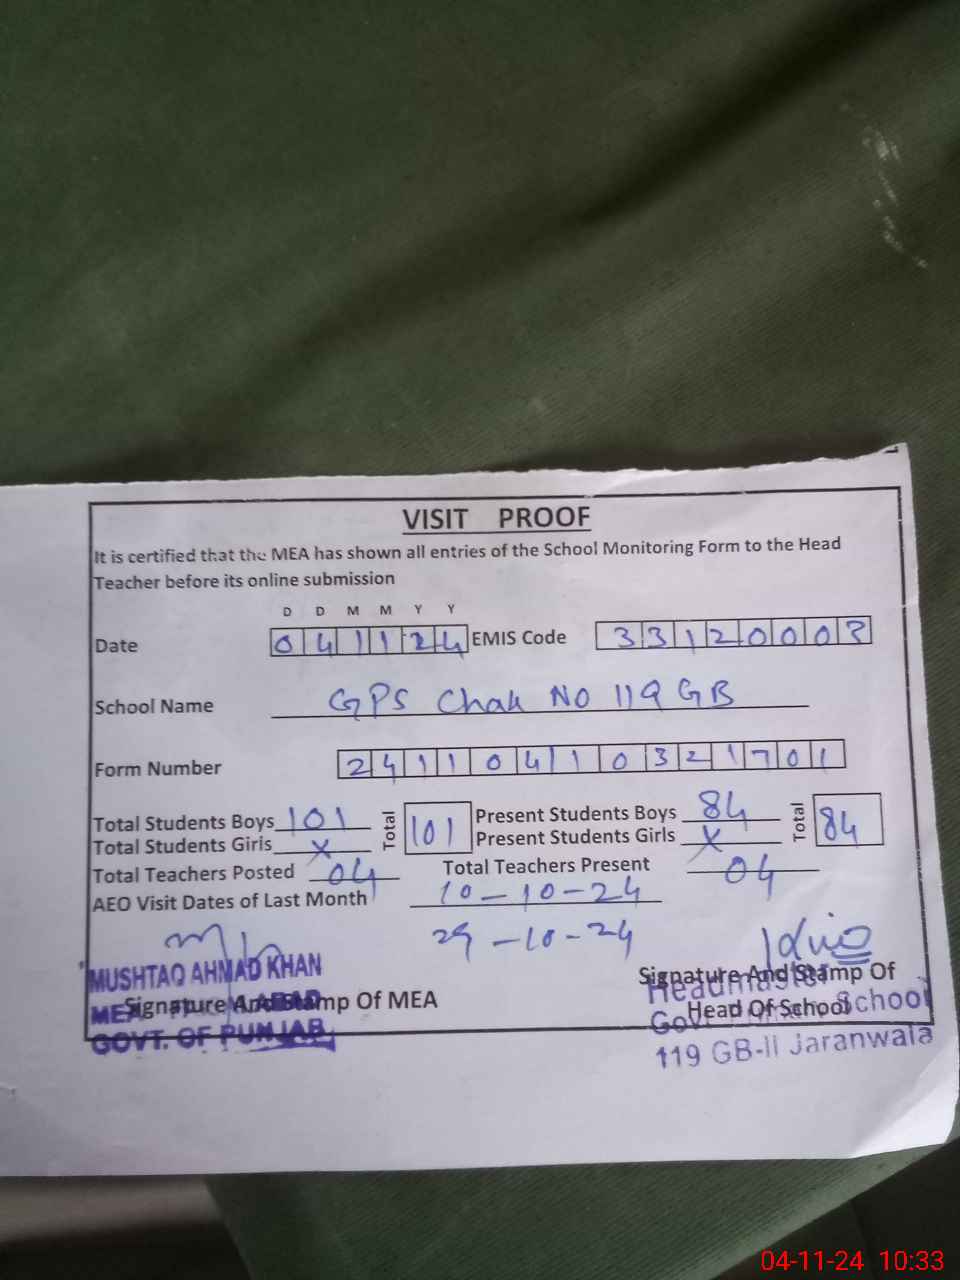 VISIT PROOF
It is certified that the MEA has shown all entries of the School Monitoring Form to the Head
Teacher before its online submission
D D M M Y Y
Date 041124 EMIS Code 33120003
School Name GPS Chak NO 119 GB
Form Number 24110410321701
Total Students Boys 101 Total 101 Present Students Boys 84 Total 84
Total Students Girls X Present Students Girls X
Total Teachers Posted 04 Total Teachers Present 04
AEO Visit Dates of Last Month 10-10-24
29-10-24
MUSHTAQ AHMAD KHAN
MEA
GOVT. OF PUNJAB
Signature And Stamp Of MEA
Signature And Stamp Of
Head Of School
Headmaster
Govt. School
119 GB-II Jaranwala
04-11-24 10:33